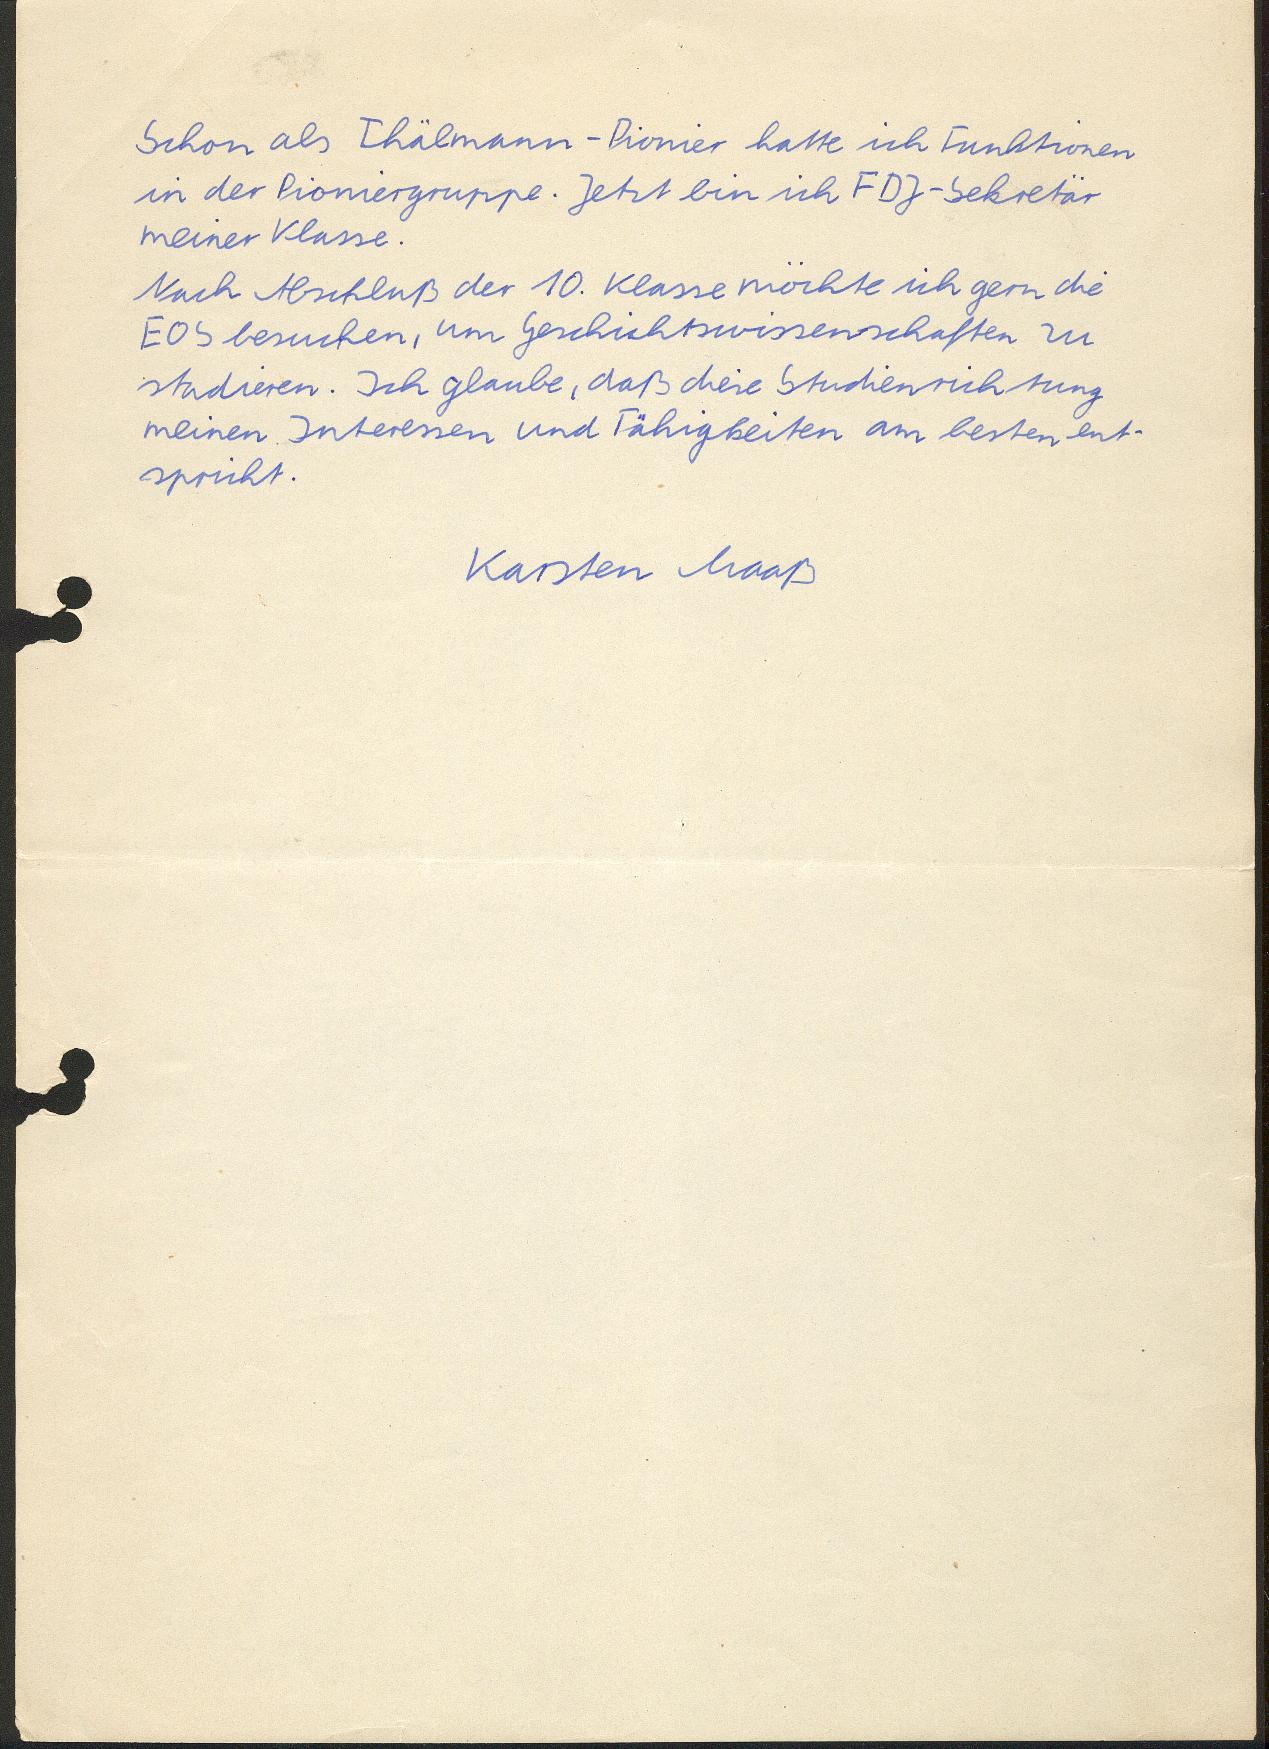 Schon als Thälmann-Pionier hatte ich Funktionen
in der Pioniergruppe. Jetzt bin ich FDJ-Sekretär
meiner Klasse.
Nach Abschluß der 10. Klasse möchte ich gern die
EOS besuchen, um Geschichtswissenschaften zu
studieren. Ich glaube, daß diese Studienrichtung
meinen Interessen und Fähigkeiten am besten ent-
spricht.
Karsten Maaß